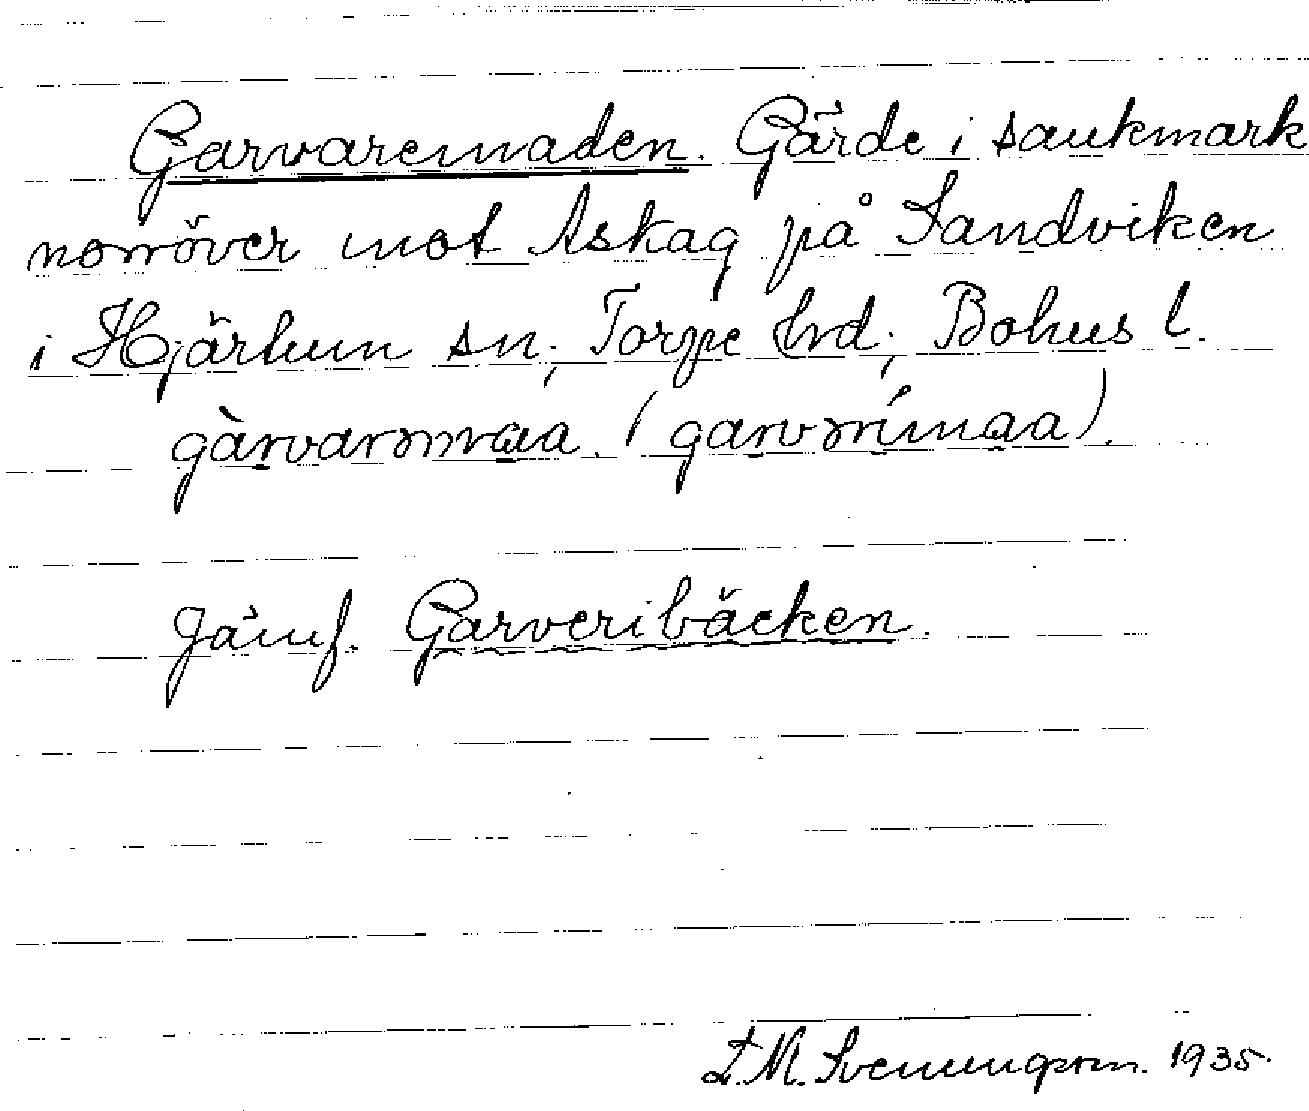 Garvaremaden. Gärde i sankmark
norröver mot Askag på Sandviken
i Hjärtum sn; Torpe hrd; Bohus l.
gàrvarmaa. (garvrímaa).
Jämf. Garveribäcken.
L.M. Svenungsson. 1935.